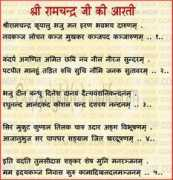 श्री रामचन्द्र जी की आरती
श्रीरामचन्द्र कृपालु भजु मन हरण भवभय दारुणम् ।
नवकञ्ज लोचन कञ्ज मुखकर कञ्जपद कञ्जारुणम् ।। १..
कंदर्प अगणित अमित छवि नव नील नीरज सुन्दरम् ।
पटपीत मानहुं तडित रुचि सुचि नौमि जनक सुतावरम् ।। २..
भजु दीन बन्धु दिनेश दानव दैत्यवंशनिकन्दनम् ।
रघुनन्द आनंदकंद कोशल चन्द दशरथ नन्दनम् ।। ३..
सिर मुकुट कुण्डल तिलक चारु उदार अङ्ग विभूषणम् ।
आजानुभुज सर चापधर सङ्ग्राम जित खरदूषणम् ।। ४..
इति वदति तुलसीदास शङ्कर शेष मुनि मनरञ्जनम् ।
मम हृदयकञ्ज निवास कुरु कामादिखलदलमञ्जनम् ।। ५..